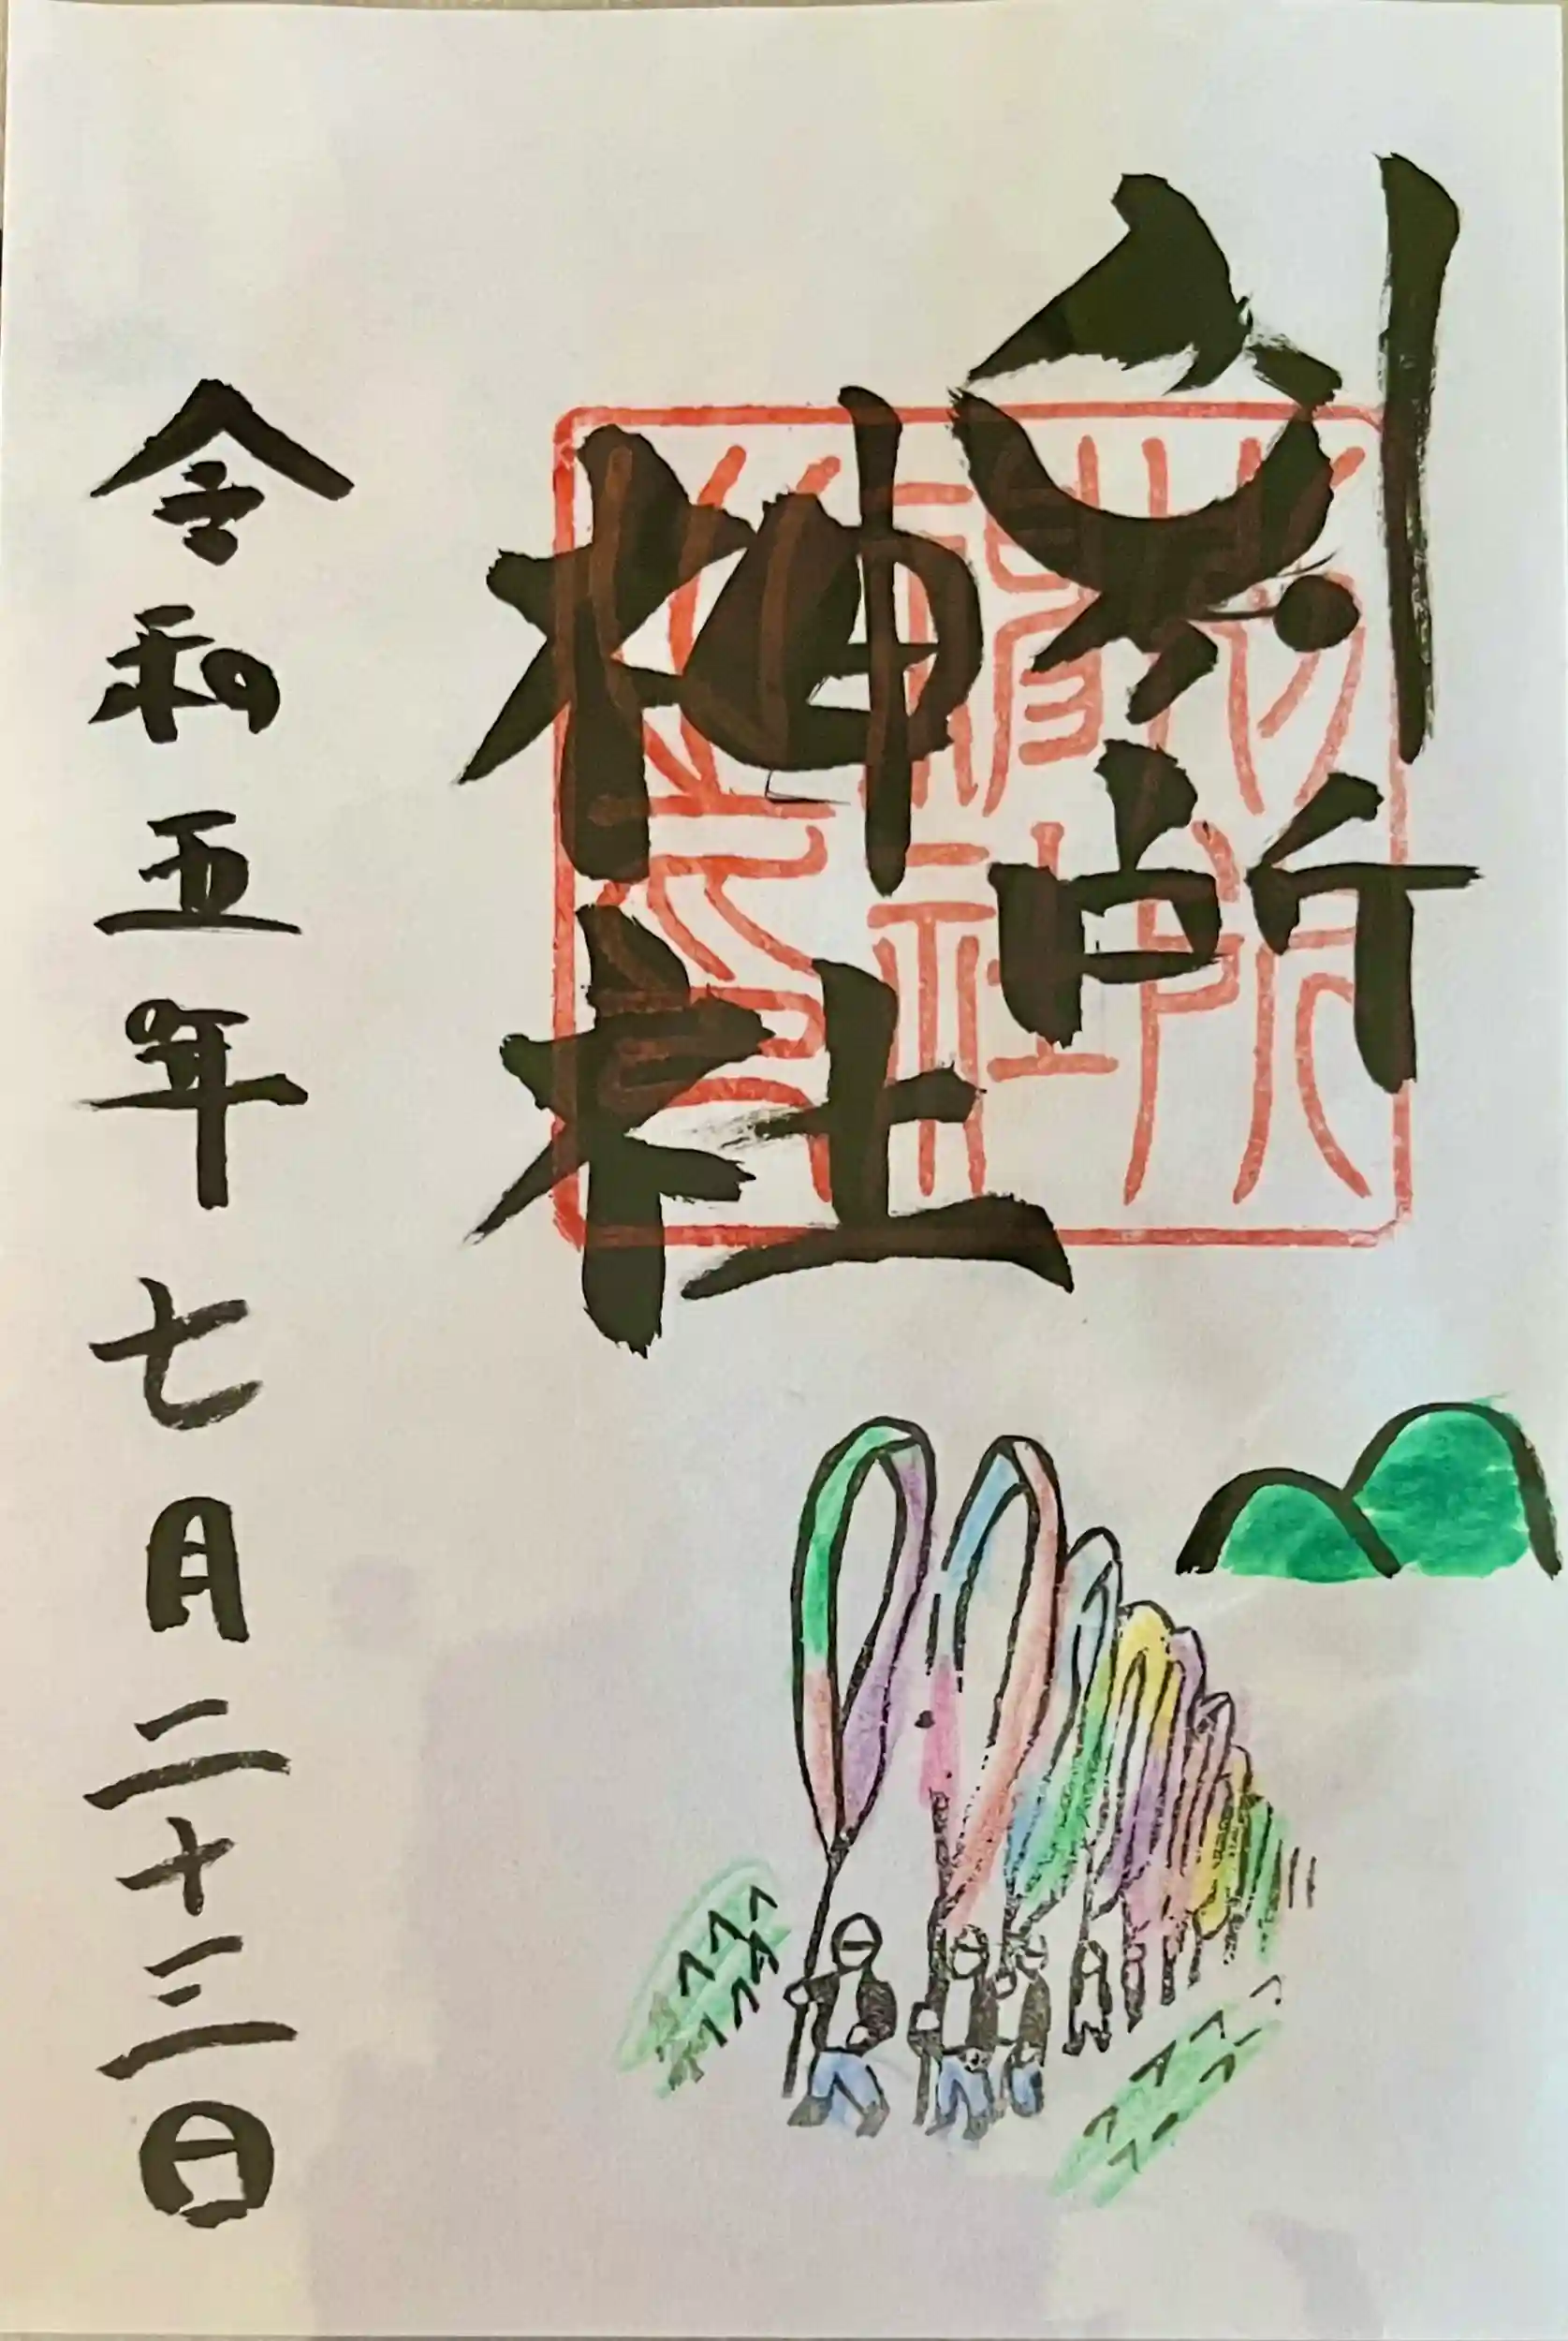 別所
神社
令和五年七月二十三日
別所
神社
之印